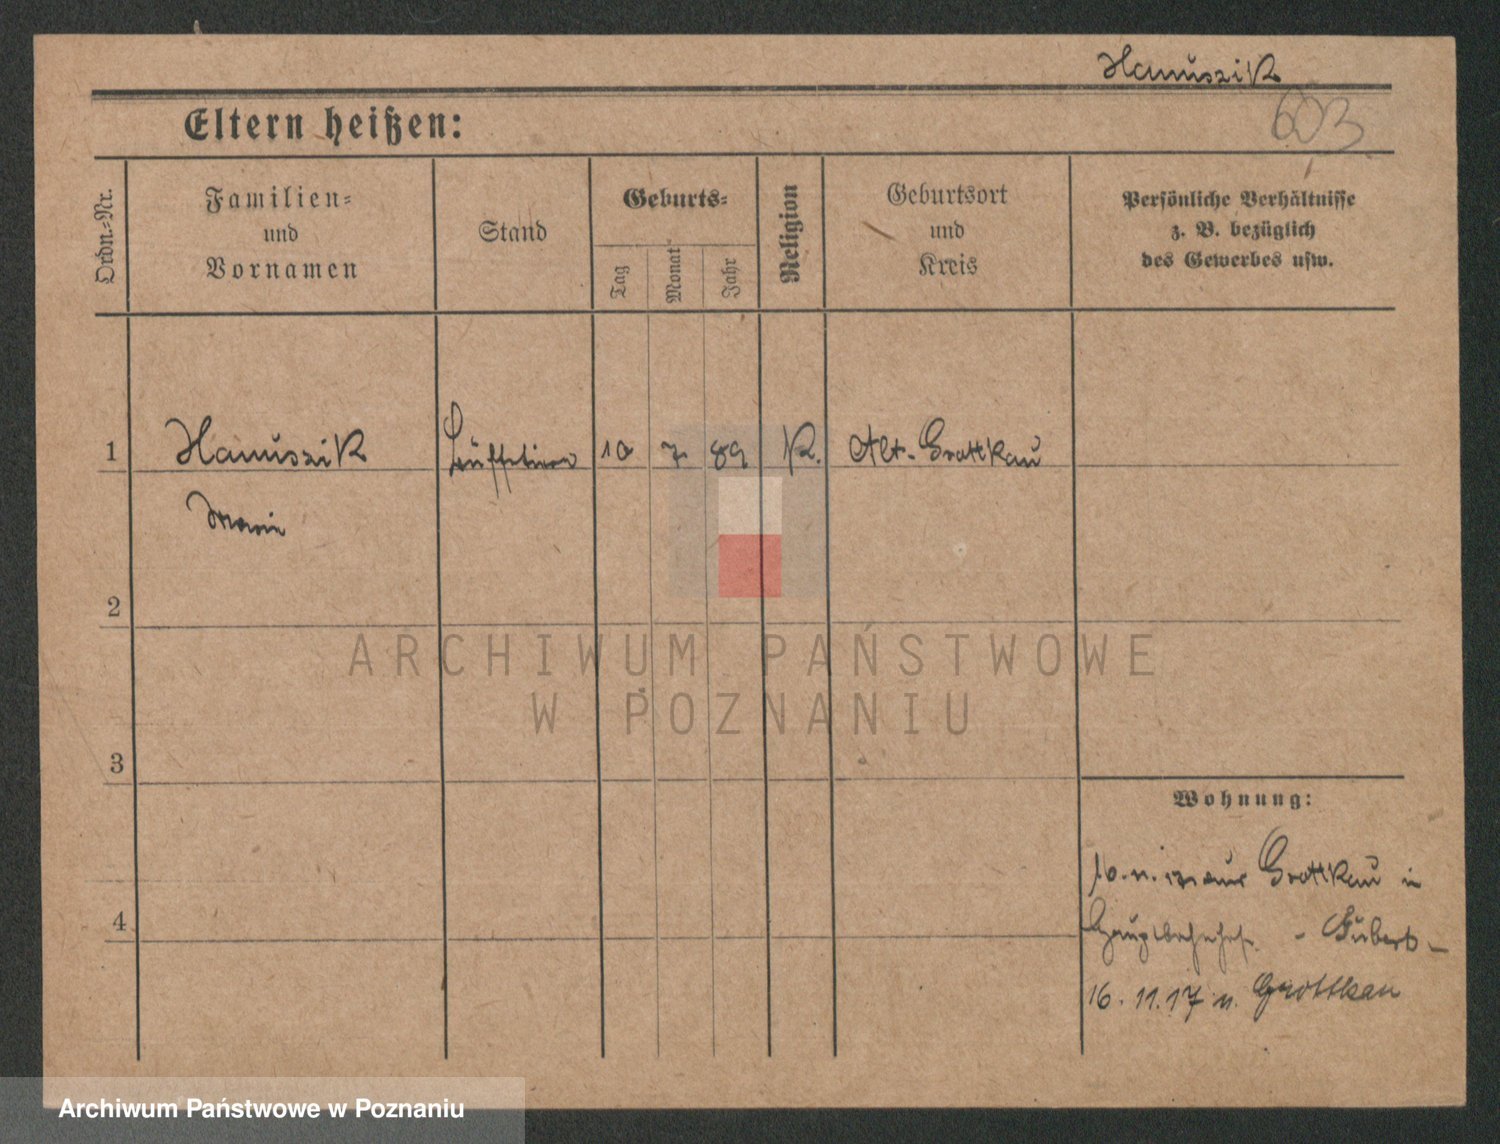 Hanuszik
603
Eltern heißen:
Ordn.=Nr.
Familien=
und
Vornamen
Stand
Geburts=
Tag
Monat
Jahr
Religion
Geburtsort
und
Kreis
Persönliche Verhältnisse
z. B. bezüglich
des Gewerbes usw.
1
Hanuszik
10 7 89
K.
Alt-Grottkau
Marie
2
ARCHIWUM PAŃSTWOWE
W POZNANIU
3
Wohnung:
aus Grottkau in
4
Hauptbahnhof -
16. 11. 17 n. Grottkau
Archiwum Państwowe w Poznaniu